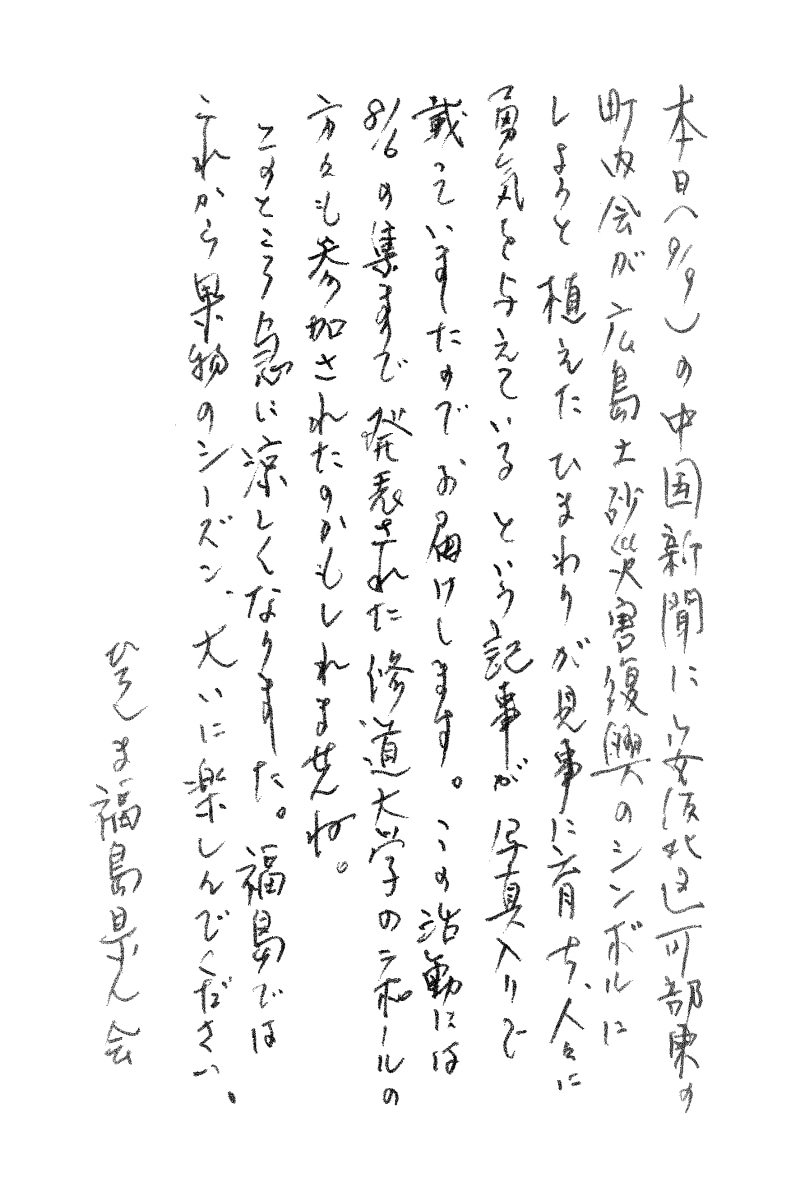 本日(9/9)の中国新聞に安佐北区可部東の
町内会が広島土砂災害復興のシンボルに
しようと植えたひまわりが見事に育ち、人々に
勇気を与えているという記事が写真入りで
載っていましたのでお届けします。この活動には
8/6の集まで発表された修道大学のラポールの
方々も参加されたのかもしれませんね。
このところ急に涼しくなりました。福島では
これから果物のシーズン、大いに楽しんでください。
ひろしま福島県人会